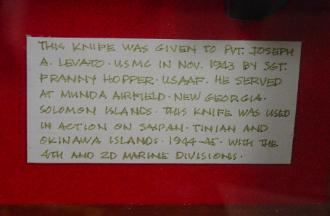 THIS KNIFE WAS GIVEN TO PVT. JOSEPH
A. LEVATO · USMC IN NOV. 1943 BY SGT.
FRANNY HOPPER · USAAF. HE SERVED
AT MUNDA AIRFIELD · NEW GEORGIA ·
SOLOMON ISLANDS · THIS KNIFE WAS USED
IN ACTION ON SAIPAN · TINIAN AND
OKINAWA ISLANDS · 1944-45 · WITH THE
4TH AND 2D MARINE DIVISIONS ·